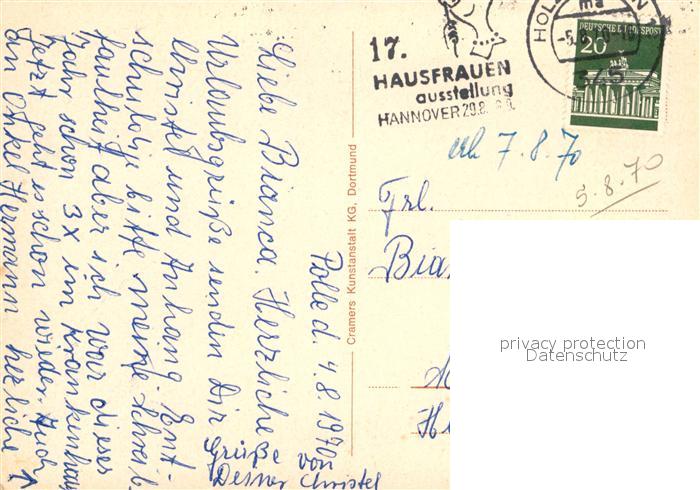 Polle d. 4.8.1970
Liebe Bianca. Herzliche
Urlaubsgrüße senden Dir
Christel und Anhang. Ent-
schuldige bitte meine Schreib-
faulheit aber ich war dieses
Jahr schon 3x im Krankenhaus
Jetzt geht es schon wieder. Auch
an Onkel Hermann herzliche
Grüße von
Deiner Christel
Cramers Kunstanstalt KG, Dortmund
17.
HAUSFRAUEN
ausstellung
HANNOVER 29.8.
DEUTSCHE BUNDESPOST
20
HOL
ma
345
erh 7.8.70
5.8.70
Frl.
Bian
privacy protection
Datenschutz